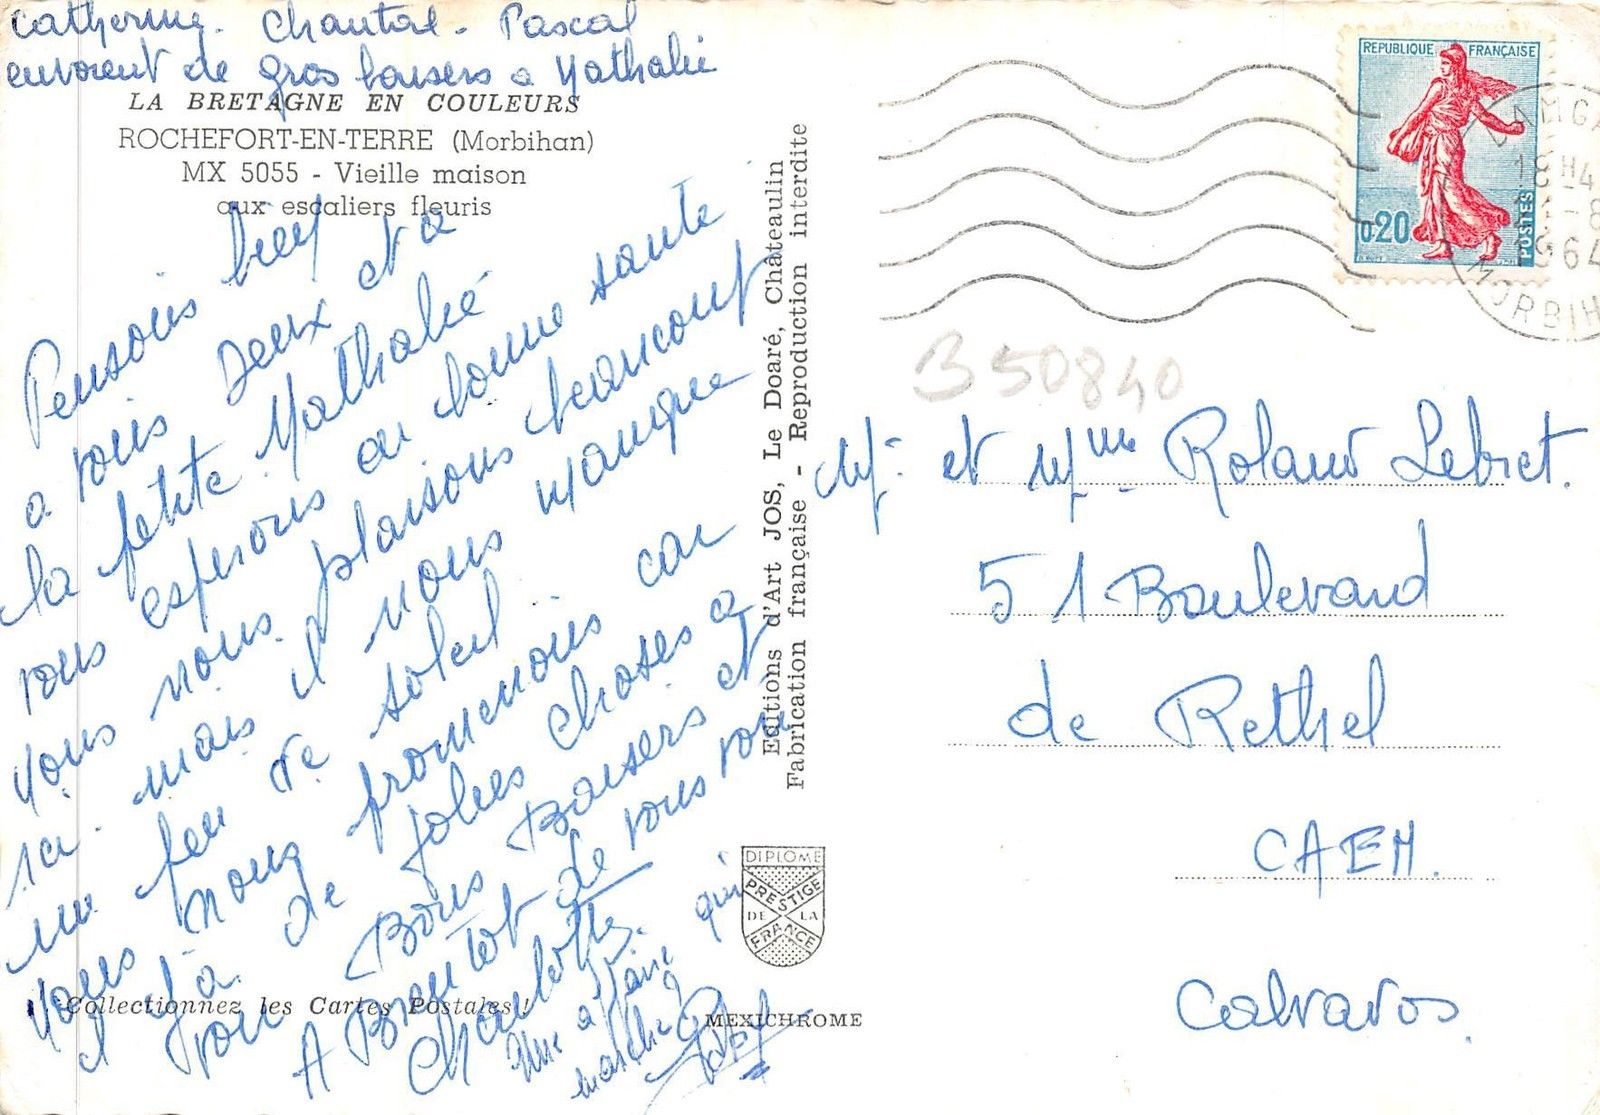 Catherine. Chantal - Pascal
envoient de gros baisers a Nathalie
LA BRETAGNE EN COULEURS
ROCHEFORT-EN-TERRE (Morbihan)
MX 5055 - Vieille maison
aux escaliers fleuris
Pensons bien
a vous Deux et a
la petite Nathalie
vous esperons en bonne sante
Nous nous plaisons beaucoup
ici. mais il nous manque
un peu de soleil
Nous nous promenons car
il y a de jolies choses a
voir Bons Baisers et
A Bientot de vous voir
Charlotte
une affaire qui
marche
Editions d'Art JOS, Le Doaré, Châteaulin
Fabrication française - Reproduction interdite
Collectionnez les Cartes Postales !
MEXICHROME
DIPLOME
PRESTIGE
DE LA
FRANCE
REPUBLIQUE FRANÇAISE
0,20
POSTES
18 H 4
-8
1964
MORBIH
B 50840
Mr. et Mme Roland Lebret.
51 Boulevard
de Rethel
CAEN.
Calvados.